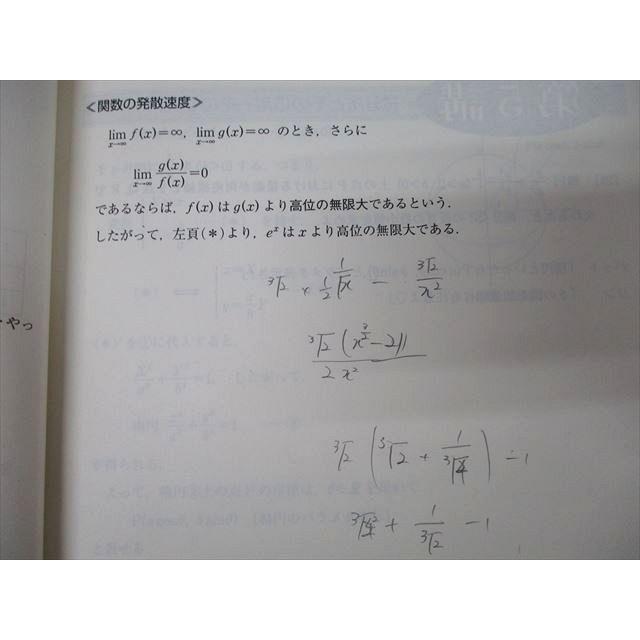 ＜関数の発散速度＞
lim_{x→∞} f(x)=∞, lim_{x→∞} g(x)=∞ のとき，さらに
lim_{x→∞} g(x)/f(x)=0
であるならば，f(x)はg(x)より高位の無限大であるという．
したがって，左頁(*)より，eˣはxより高位の無限大である．
∛2 × 1/2 1/√x − ∛2/x²
・やっ
∛2 (x^{3/2}−2)/2x²
∛2 (∛2 + 1/∛4) −1
∛4 + 1/∛2 −1